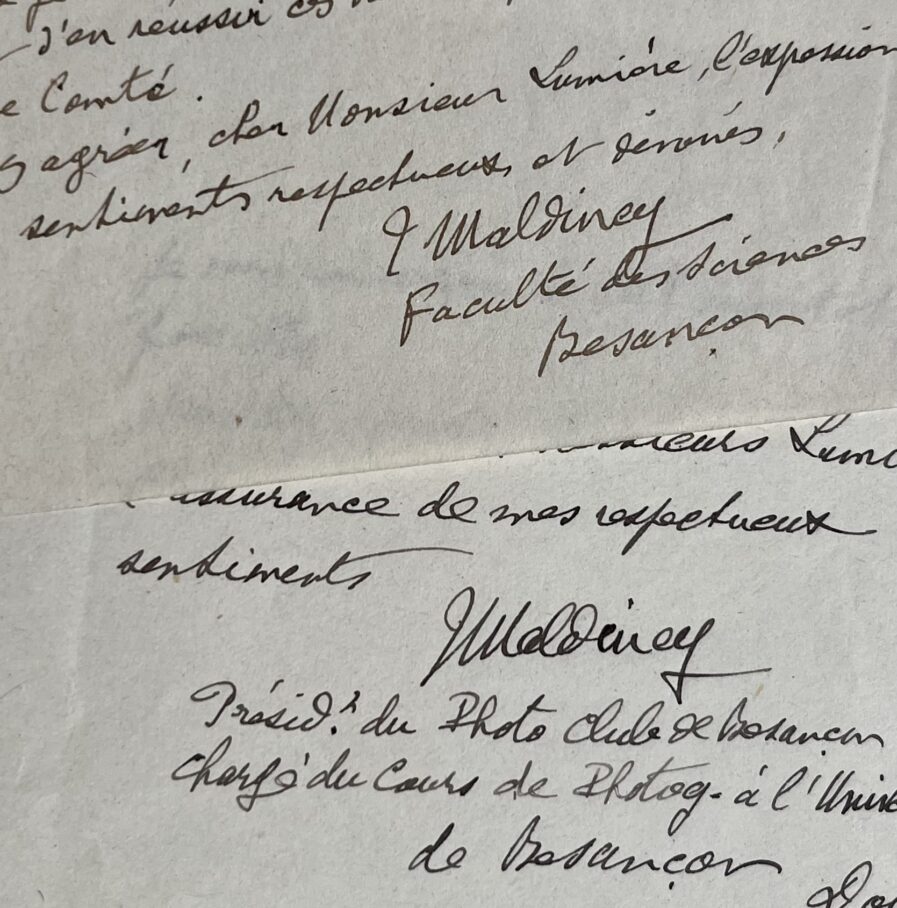 d'en réussir
e Comté.
agréer, cher Monsieur Lumière, l'expession
sentiments respectueux et dévoués,
J Maldiney
Faculté des Sciences
Besançon
Messieurs Lumi
l'assurance de mes respectueux
sentiments
J Maldiney
Présid.t du Photo Club de Besançon
Chargé du Cours de Photog. à l'Unive
de Besançon